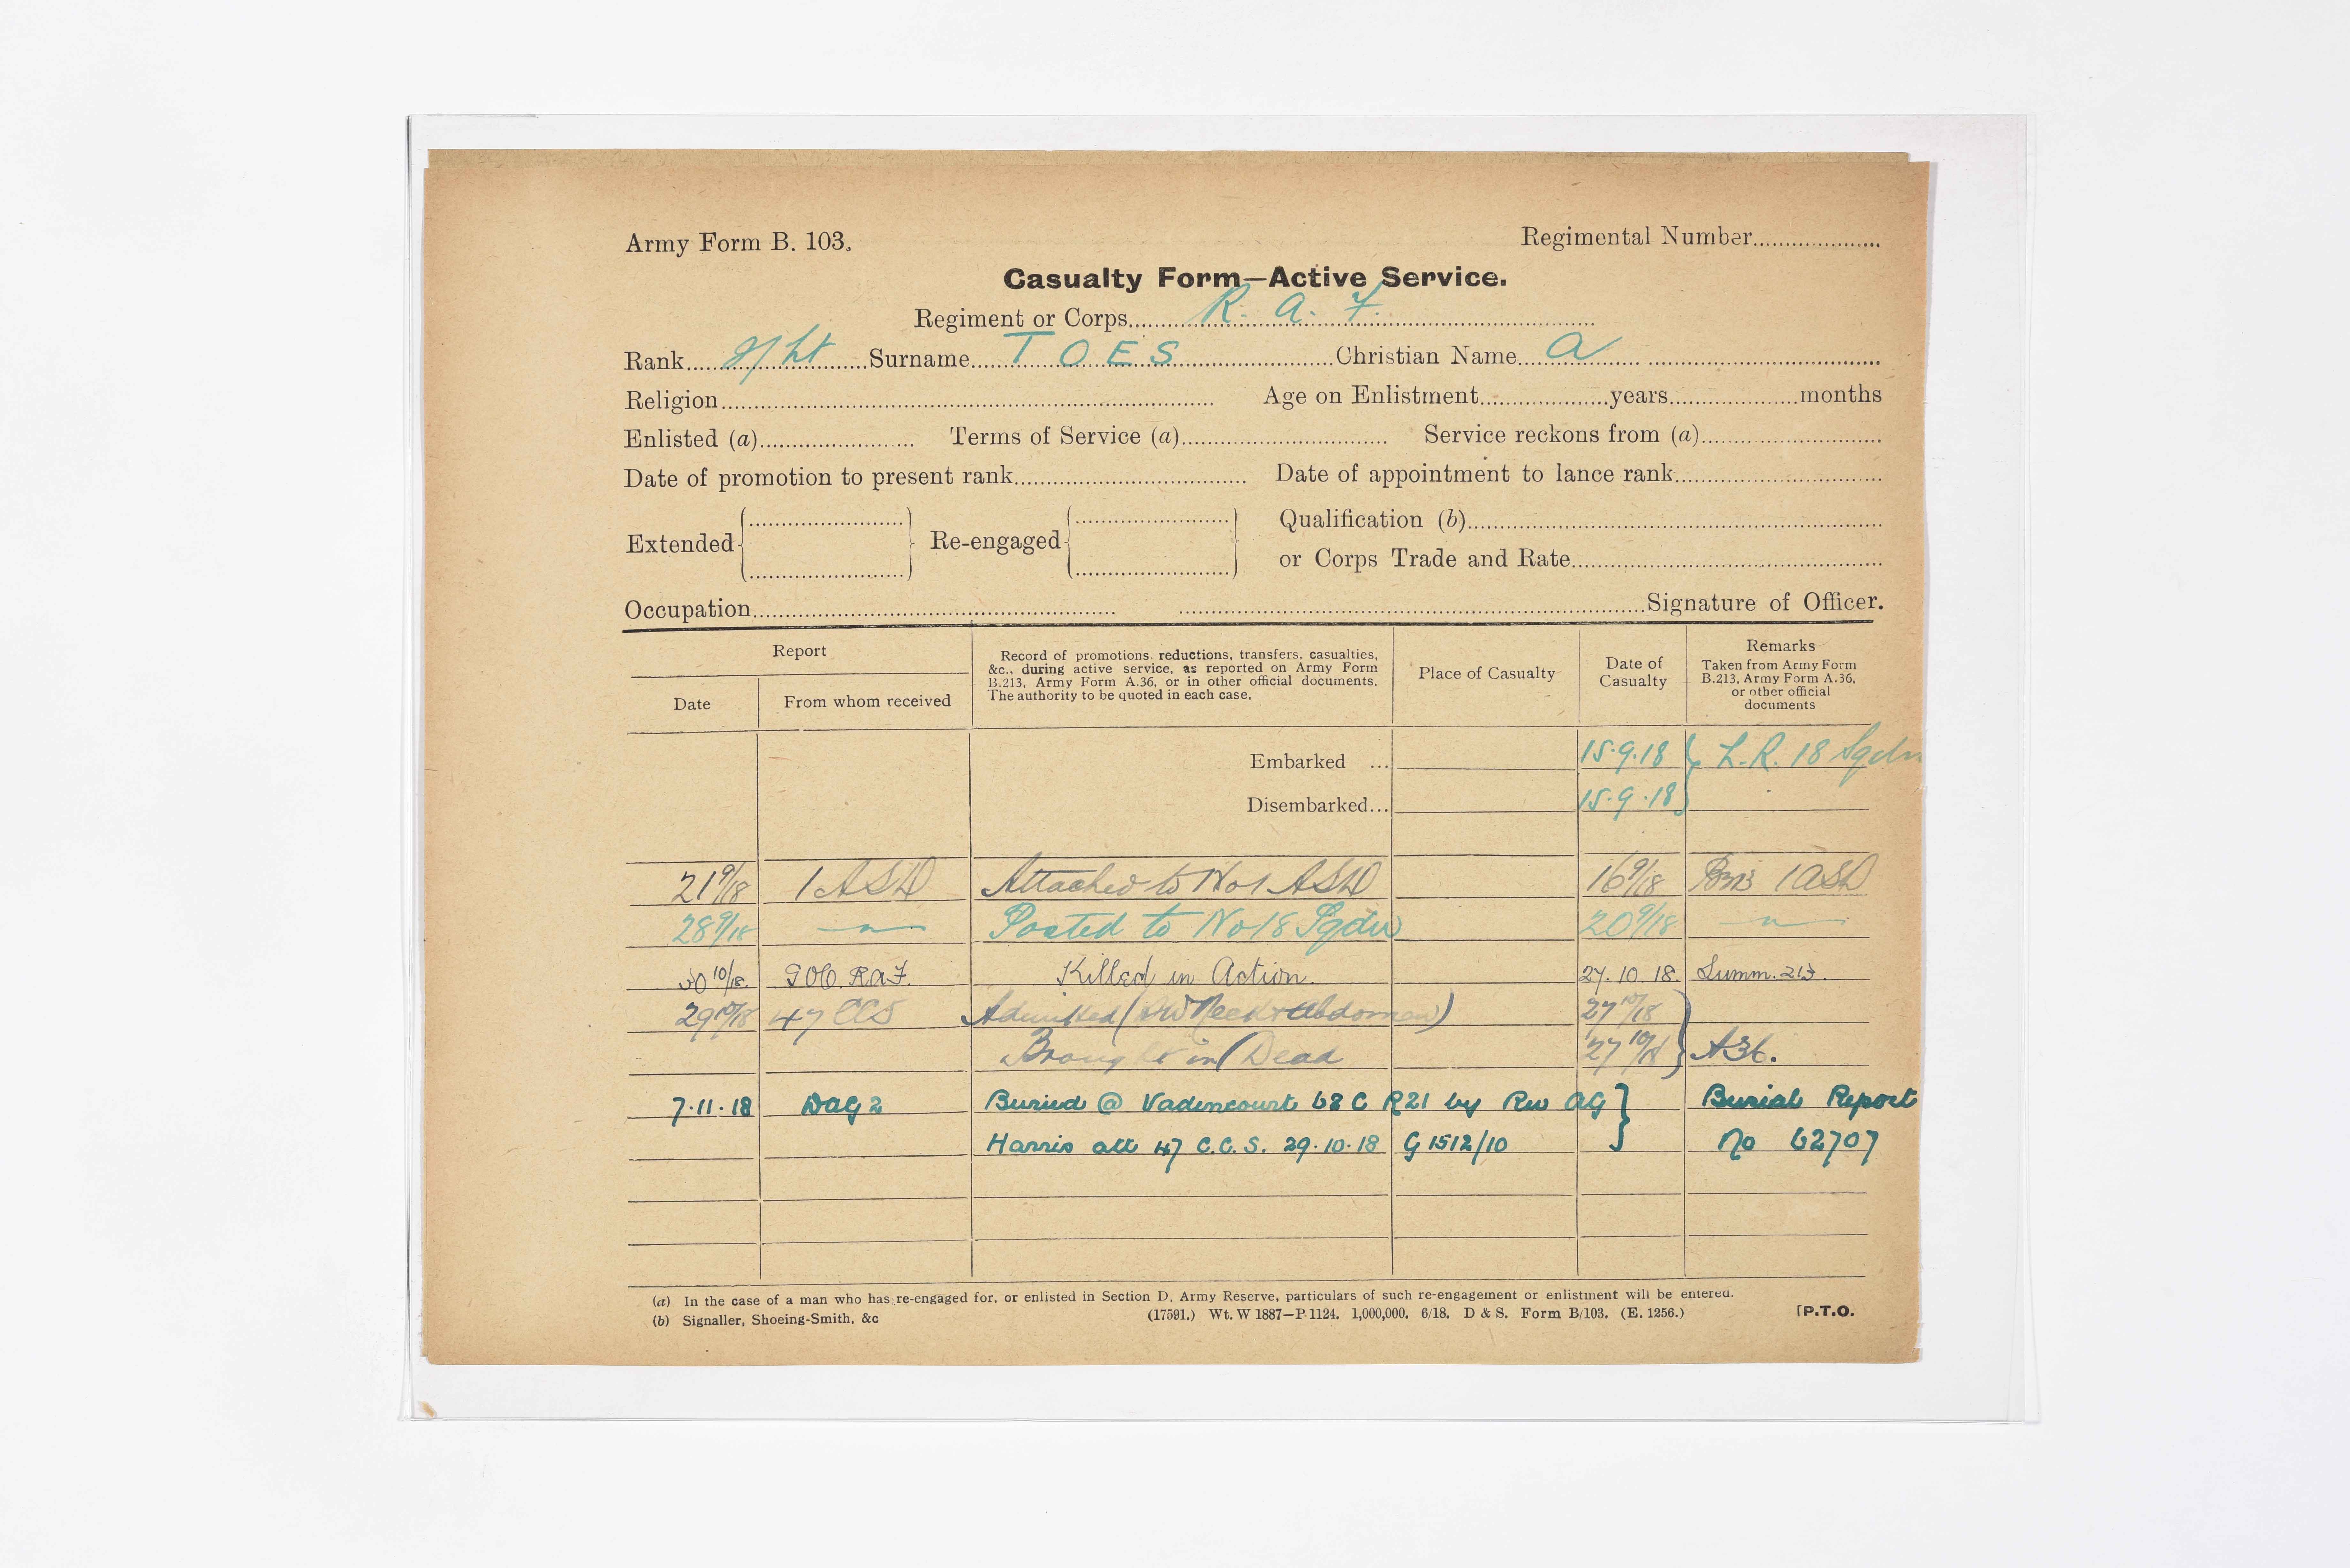 Army Form B. 103.
Regimental Number....................
Casualty Form—Active Service.
Regiment or Corps R. A. F.
Rank 2/Lt Surname TOES Christian Name A
Religion Age on Enlistment years months
Enlisted (a) Terms of Service (a) Service reckons from (a)
Date of promotion to present rank Date of appointment to lance rank
Extended Re-engaged Qualification (b)
or Corps Trade and Rate
Occupation Signature of Officer.
Report
Date From whom received
Record of promotions, reductions, transfers, casualties,
&c., during active service, as reported on Army Form
B.213, Army Form A.36, or in other official documents.
The authority to be quoted in each case.
Place of Casualty
Date of
Casualty
Remarks
Taken from Army Form
B.213, Army Form A.36,
or other official
documents
Embarked ... 15.9.18 L.R. 18 Sqdn
Disembarked... 15.9.18
21 9/18 1 ASD Attached to No 1 ASD 16 9/18 B213 1 ASD
28 9/18 — " — Posted to No 18 Sqdn 20 9/18 — " —
30 10/18. GOC. RAF. Killed in Action. 27.10.18. Summ. 213.
29 10/18 47 CCS Admitted (SW Neck + Abdomen) 27 10/18
Brought in Dead 27 10/18 A36.
7.11.18 DAG 2 Buried @ Vadencourt 62 C R21 by Rev AG Burial Report
Harris att 47 C.C.S. 29.10.18 G 1512/10 No 62707
(a) In the case of a man who has re-engaged for, or enlisted in Section D, Army Reserve, particulars of such re-engagement or enlistment will be entered.
(b) Signaller, Shoeing-Smith, &c (17591.) Wt. W 1887—P. 1124. 1,000,000. 6/18. D & S. Form B/103. (E. 1256.) [P.T.O.